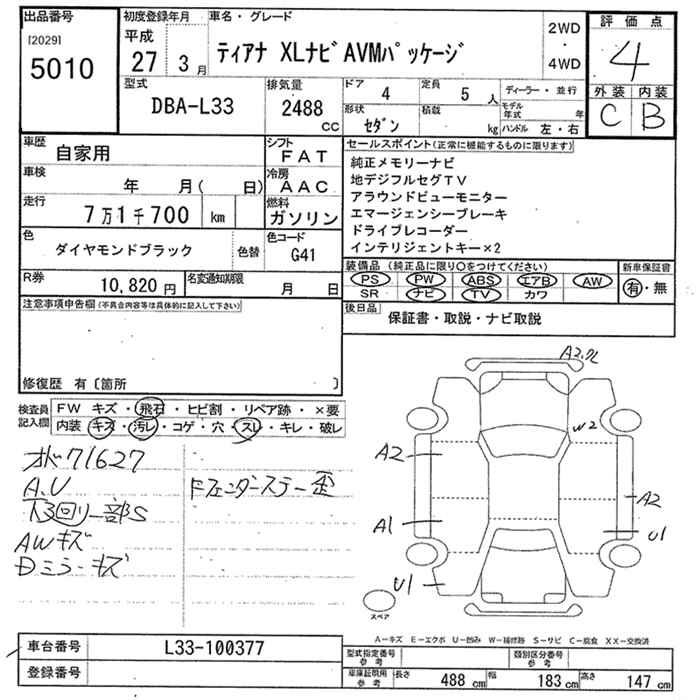 出品番号
[2029]
5010
初度登録年月
平成
27 3月
車名・グレード
ティアナ XLナビAVMパッケージ
2WD
・
4WD
評価点
4
外装 内装
C B
型式
DBA-L33
排気量
2488
CC
ドア
4
定員
5 人
形状
セダン
積載
kg
ディーラー・並行
モデル年式 年
ハンドル 左・右
車歴
自家用
シフト
FAT
車検
年 月( 日)
冷房
AAC
走行
7万1千700 km
燃料
ガソリン
色
ダイヤモンドブラック
色替
色コード
G41
R券
10,820円
名変通知期限
月 日
セールスポイント(正常に機能するものに限ります)
純正メモリーナビ
地デジフルセグTV
アラウンドビューモニター
エマージェンシーブレーキ
ドライブレコーダー
インテリジェントキー×2
装備品 (純正品に限り○をつけてください)
PS PW ABS エアB AW
SR ナビ TV カワ
新車保証書
有・無
後日品
保証書・取説・ナビ取説
注意事項申告欄(不具合内容等は具体的に記入して下さい)
修復歴 有〔箇所 〕
検査員
記入欄
FW キズ・飛石・ヒビ割・リペア跡・×要
内装・キズ・汚レ・コゲ・穴・スレ・キレ・破レ
71627
A.U
AWキズ
Dミラーキズ
A2
W2
A2
A2
A1
U1
U1
スペア
A-キズ E-エクボ U-凹み W-補修跡 S-サビ C-腐食 XX-交換済
車台番号
L33-100377
登録番号
型式指定番号
参考
類別区分番号
参考
車庫証明用
参考
長さ 488 cm 幅 183 cm 高さ 147 cm